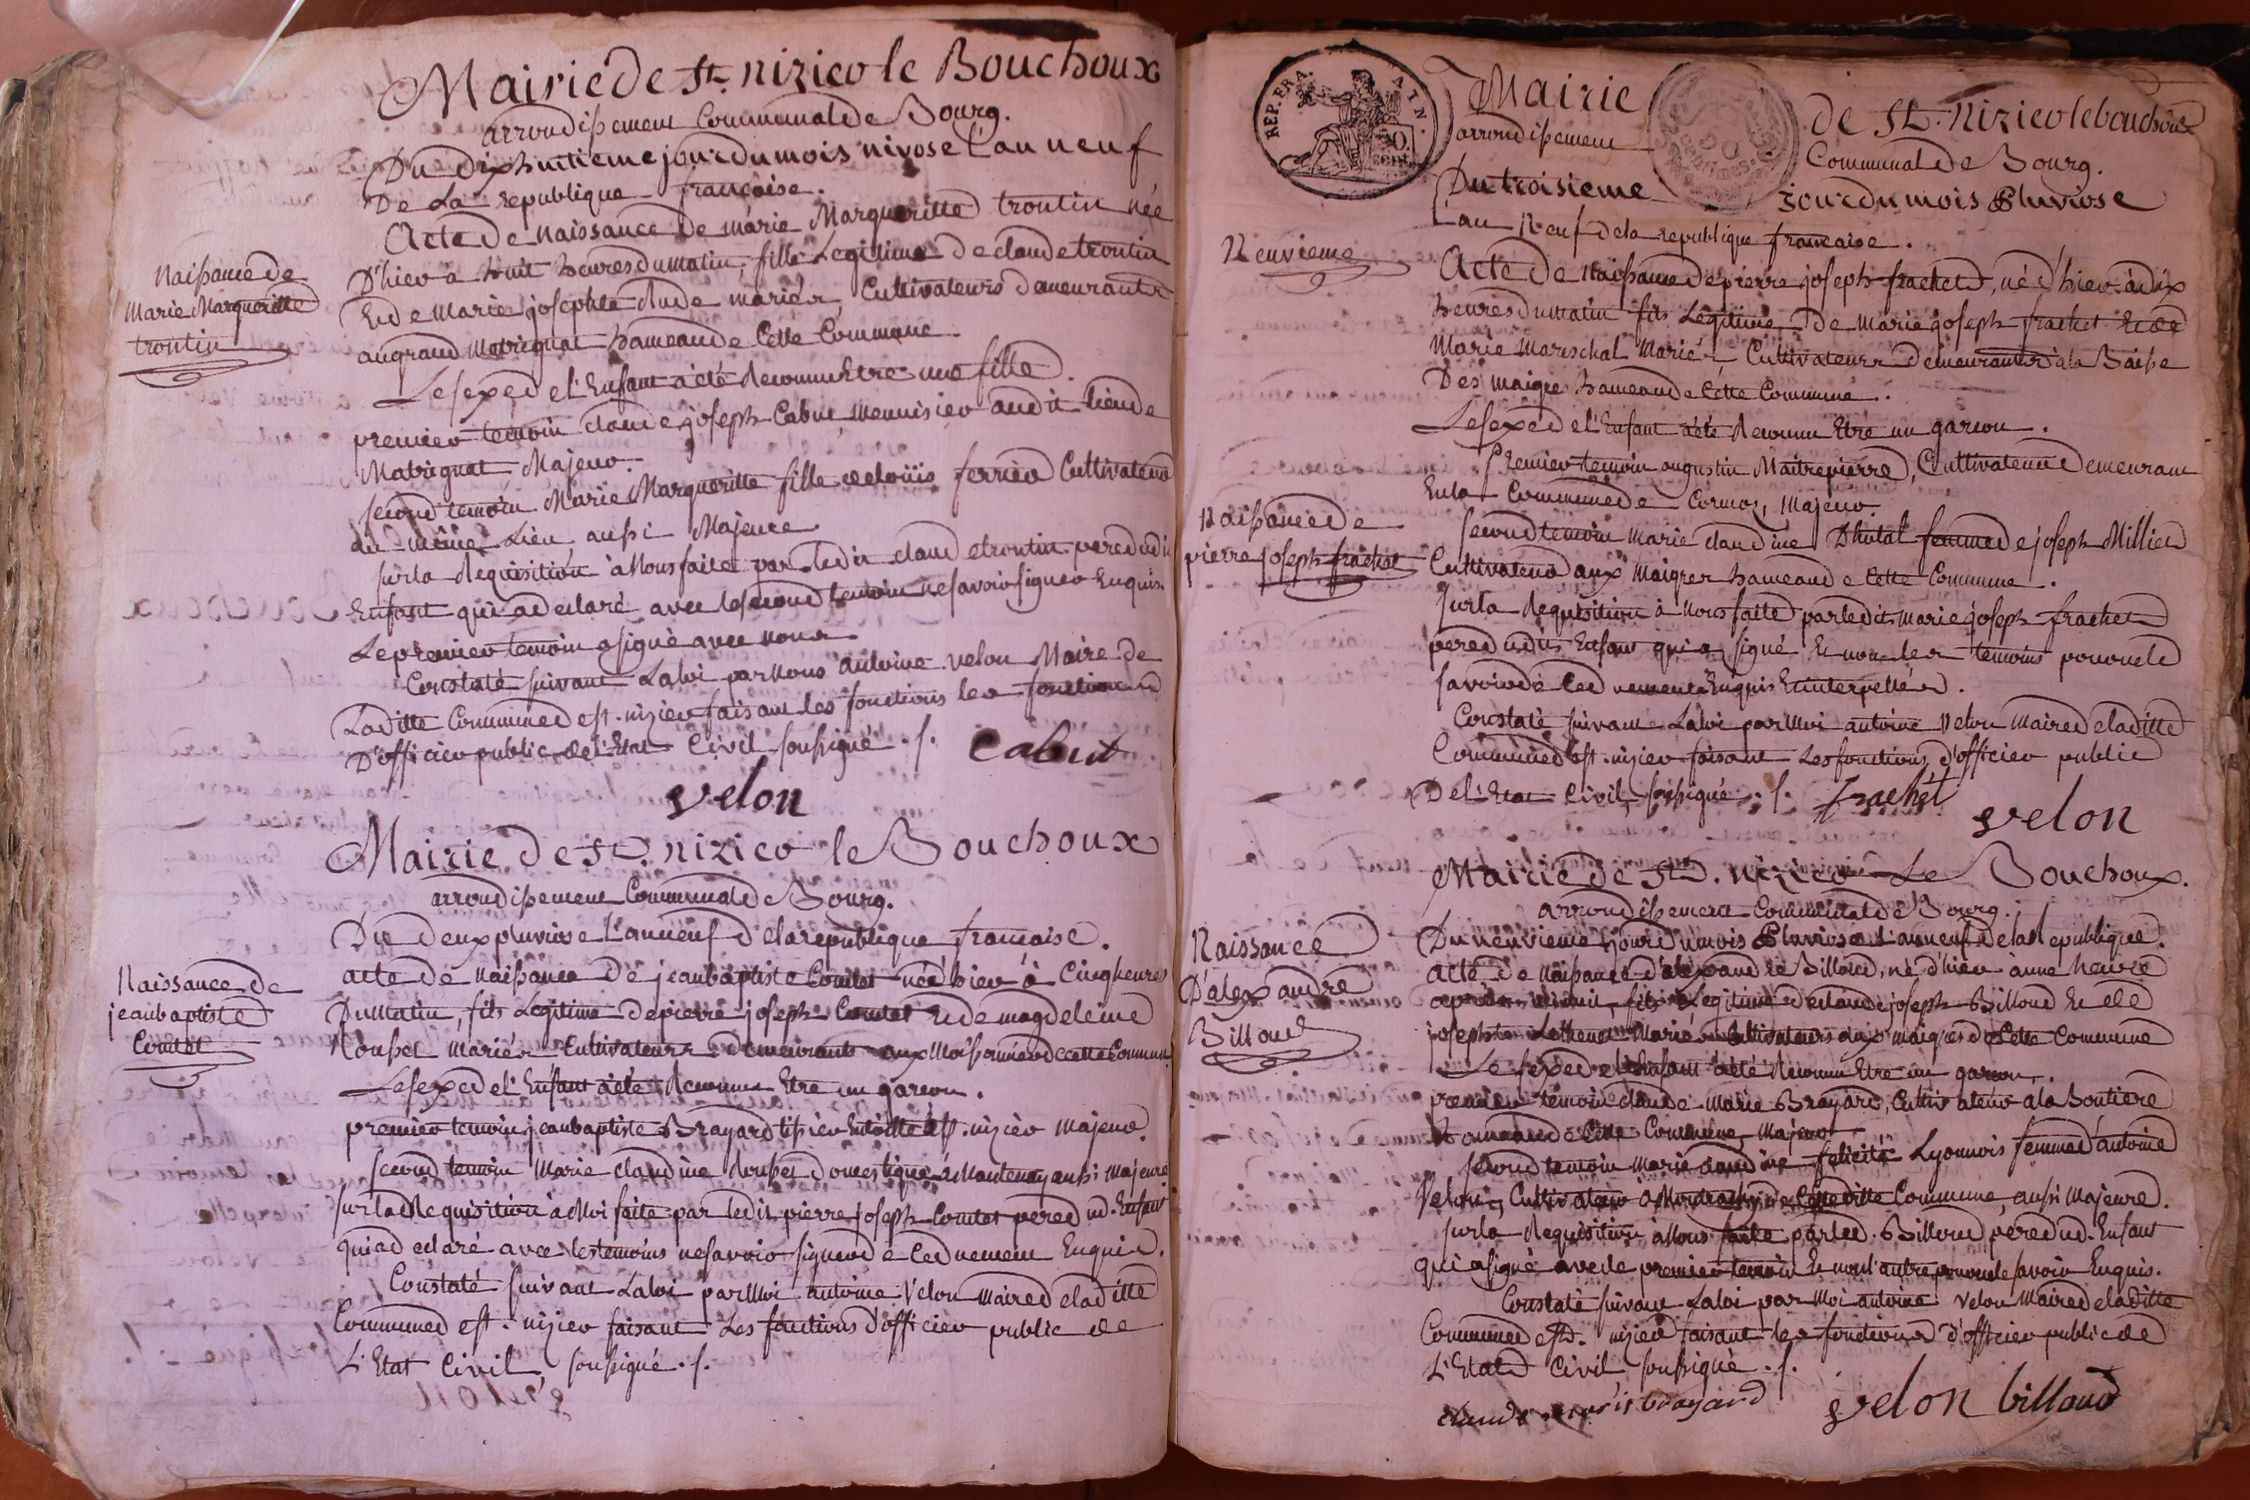 Mairie de St. nizier le Bouchoux
arrondissement Communal de Bourg.
Du dix huitieme jour du mois nivose l'an neuf
De La republique francaise.
Acte De naissance de marie Margueritte trontin née
D'hier a huit heures du matin, fille Legitime de claude trontin
Et de Marie josephte mariés, Cultivateurs demeurants
au grand Matrignat hameau de Cette Commune
Naissance de
Marie Margueritte
trontin
Le sexe de l'Enfant a été Reconnu Etre une fille.
premier temoin claude joseph Cabut menuisier audit lieu de
Matrignat, Majeur.
second temoin Marie Margueritte fille de loüis ferrier Cultivateur
du même Lieu aussi Majeure
sur la Requisition à Nous faite par Ledit claude trontin pere dudit
Enfant qui a declaré avec le second temoin ne savoir signer Enquis.
Le premier temoin a signé avec nous
Constaté suivant La loi par Nous antoine velon Maire de
Laditte Commune de st. nizier faisant les fonctions les fonctions
D'officier public de l'Etat Civil soussigné ./.
Cabut
velon
Mairie De St. nizier le Bouchoux
arrondissement Communal de Bourg.
Du deux pluviose L'an neuf de la republique francaise.
Naissance de
jean baptiste
Contet
acte de naissance de jean baptiste Contet né d'hier à Cinq heures
Du Matin, fils Legitime de pierre joseph Contet Et de magdeleine
Rousset Mariés Cultivateurs demeurants aux Moissonnier de cette Commune
Le sexe de l'Enfant a été Reconnu Etre un garcon.
premier temoin jean baptiste Brayard tissier de st. nizier majeur.
second temoin Marie claudine Rousset domestique à Mantenay aussi majeure
sur la Requisition à Moi faite par Ledit pierre joseph Contet pere dud. Enfant
qui a declaré avec les temoins ne savoir signer de Ce duement Enquis.
Constaté suivant La loi par Moi antoine Velon maire de laditte
Commune de st. nizier faisant Les fonctions d'officier public de
L'Etat Civil, soussigné ./.
REP. FRA. AIN.
50. CENT.
Mairie de St. Nizier le bouchoux
arrondissement Communal de Bourg.
Du troisieme jour du mois Pluviose
L'an Neuf de la republique francaise.
Neuvieme
Acte De Naissance de pierre joseph frachet, né d'hier à dix
heures du matin fils Legitime de Marie joseph frachet Et de
Marie Mareschal Mariés Cultivateurs demeurants à la Baisse
Des maigre hameau de Cette Commune.
Le sexe de l'Enfant a été Reconnu Etre un garcon.
Premier temoin augustin Maitrepierre, Cultivateur Demeurant
En la Commune de Cormoz, Majeur.
Naissance de
pierre joseph frachet
second temoin Marie claudine Dhutal femme de joseph Millier
Cultivateur aux Maigres hameau de Cette Commune.
sur la Requisition à Nous faitte par ledit marie joseph frachet
pere dudit Enfant qui a signé Et non les temoins pour ne le
savoir de Ce duement Enquis Et interpellés.
Constaté suivant La loi par Moi antoine Velon Maire de laditte
Commune de st. nizier faisant Les fonctions d'officier public
De l'Etat Civil, soussigné ./.
frachet
velon
Mairie De St. nizier Le Bouchoux.
arrondissement Communal de Bourg.
Naissance
D'alexandre
Billoud
Du neuvieme jour du mois Pluviose L'an neuf de la Republique.
acte de Naissance d'alexandre Billoud, né d'hier à une heure
après midi, fils Legitime de claude joseph Billoud Et de
josephte Mariés Cultivateurs aux maigres de Cette Commune
Le sexe de l'Enfant a été Reconnu Etre un garcon.
premier temoin claude Marie Brayard, Cultivateur a la Boutiere
hameau de Cette Commune, Majeur
second temoin Marie claudine felicité Lyonnois femme d'antoine
Velon, Cultivateur à de laditte Commune, aussi Majeure.
sur la Requisition à Nous faite par led. Billoud pere dud. Enfant
qui a signé avec le premier temoin Et non l'autre pour ne le savoir Enquis.
Constaté suivant La loi par Moi antoine Velon Maire de laditte
Commune de st. nizier faisant les fonctions d'officier public de
L'Etat Civil, soussigné ./.
claude marie brayard
velon billoud